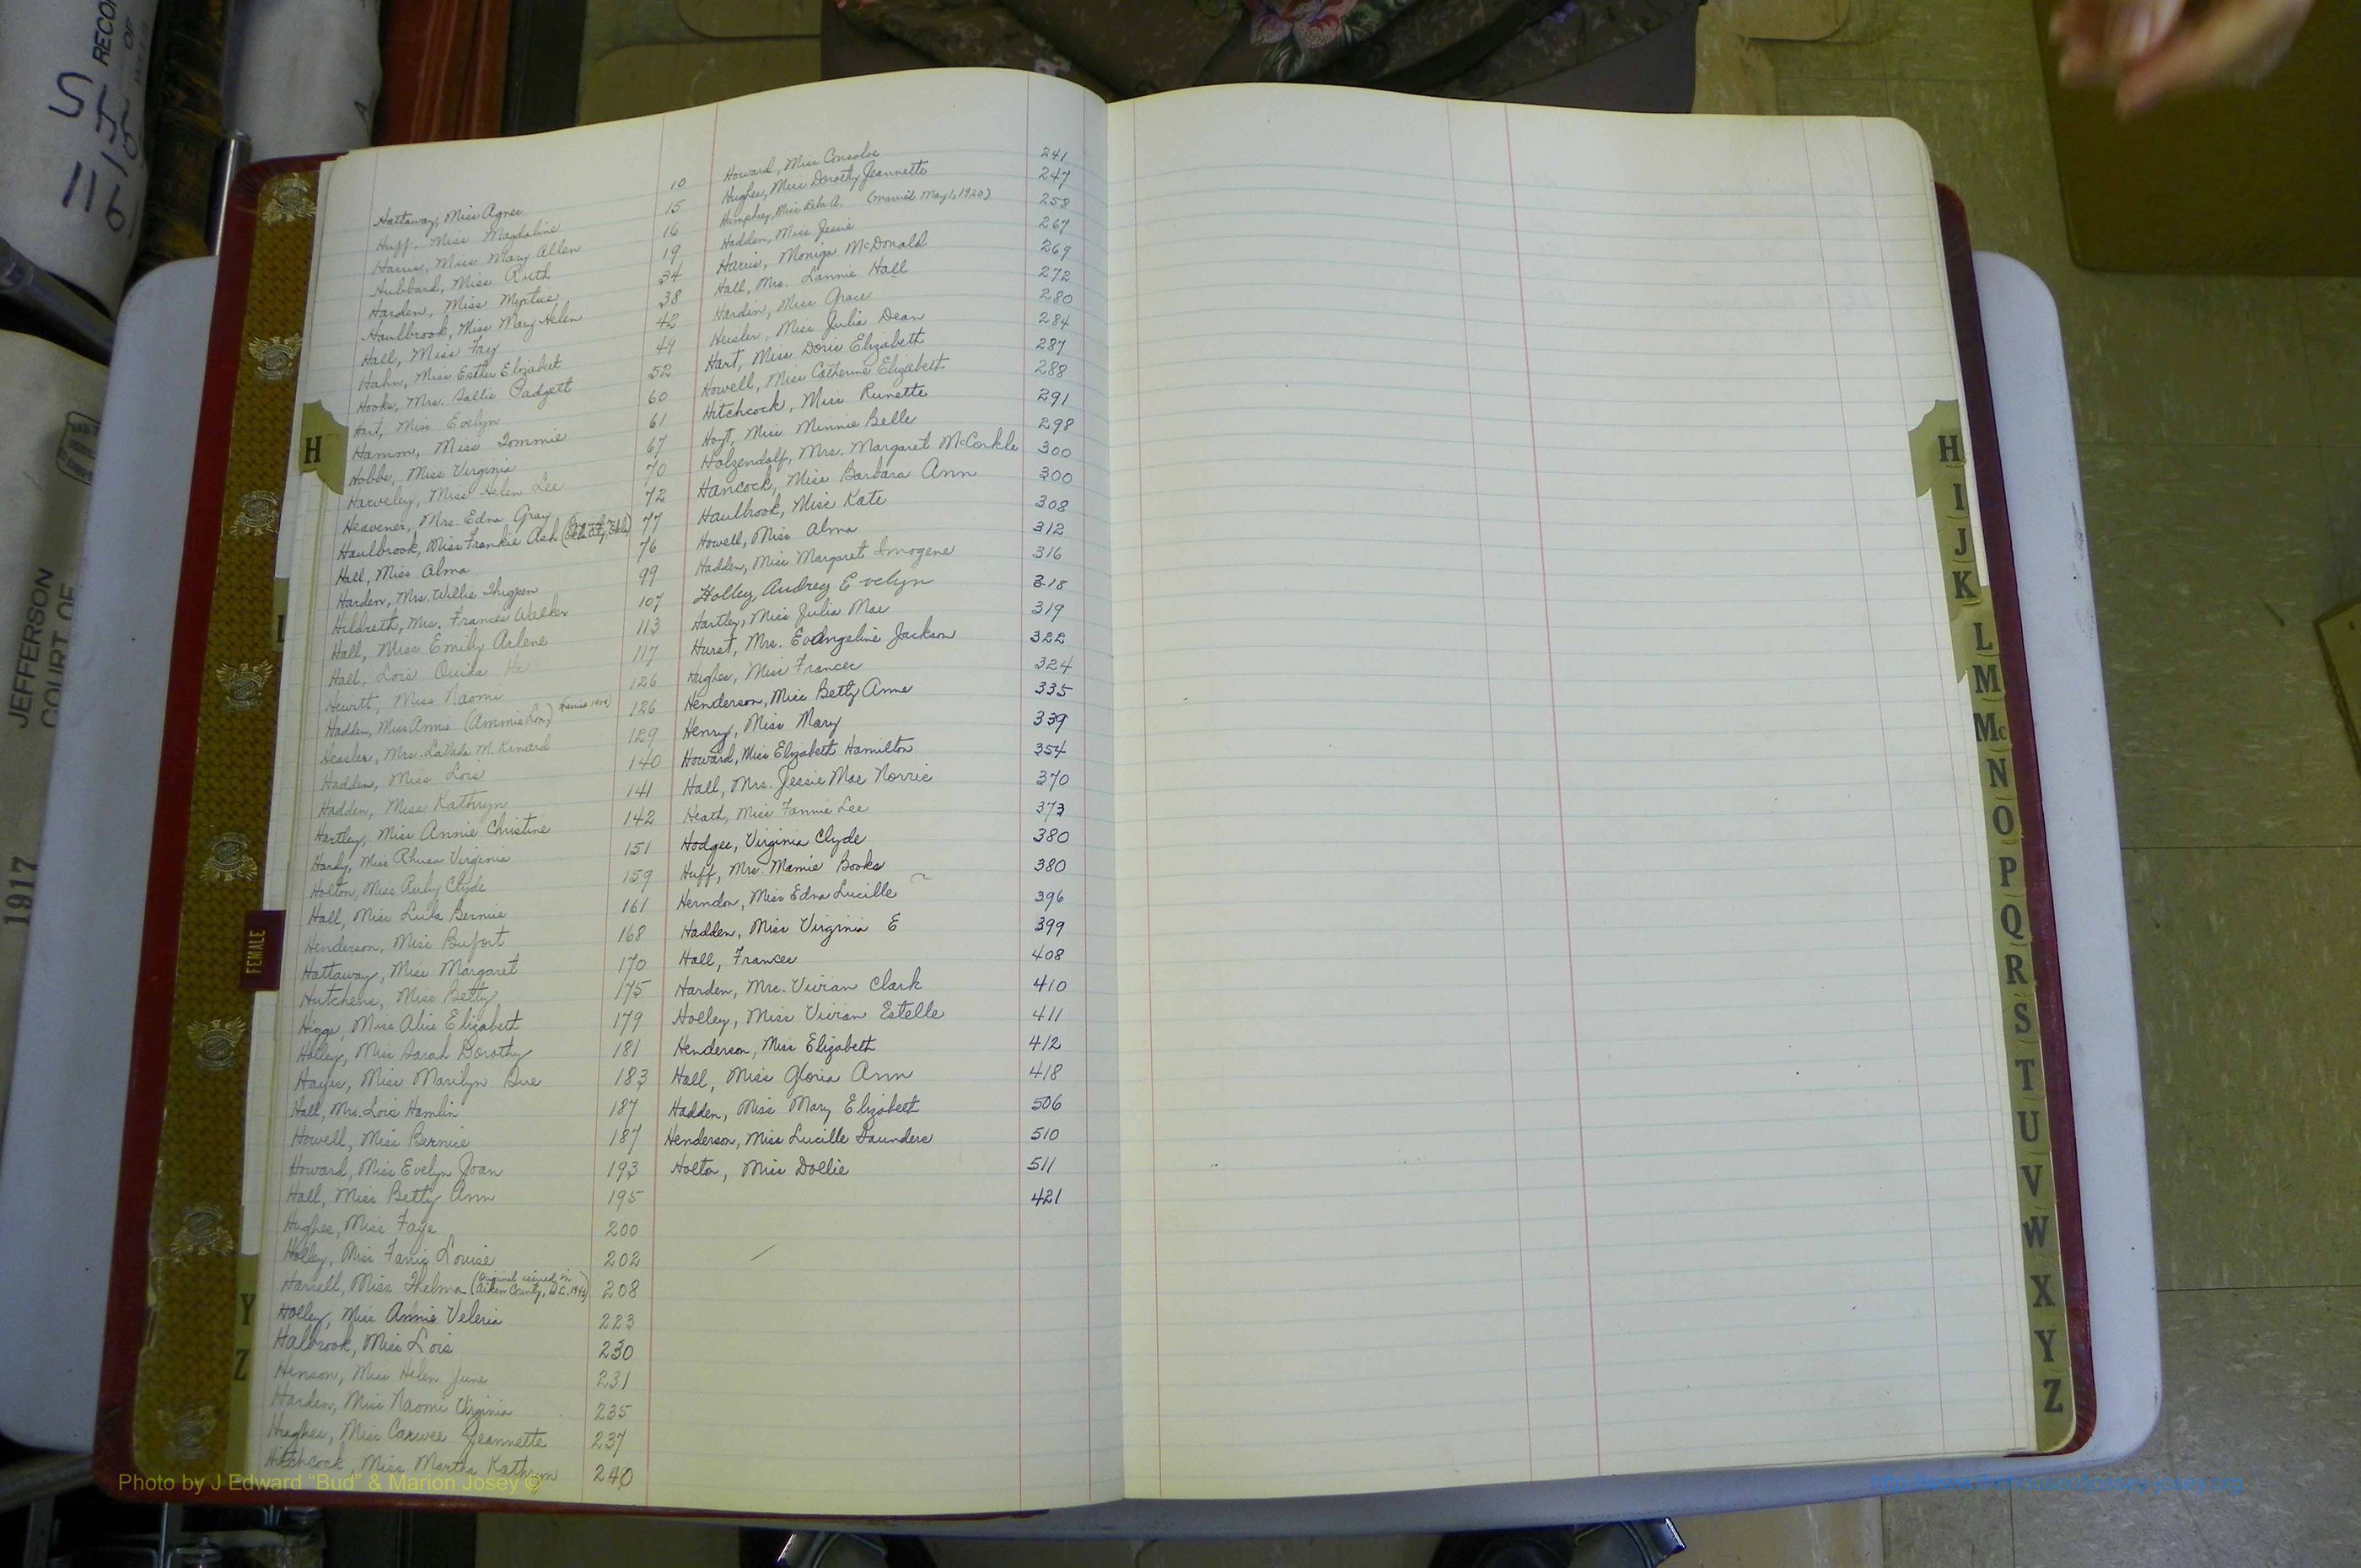 Hattaway, Miss Agnes 10
Huff, Miss Magdaline 15
Harris, Miss Mary Allen 16
Hubbard, Miss Ruth 19
Harden, Miss Myrtice 34
Haulbrook, Miss Mary Helen 38
Hall, Miss Fay 42
Hahn, Miss Esther Elizabet 49
Hooks, Mrs. Sallie Padgett 52
Hart, Miss Evelyn 60
Hamm, Miss Tommie 61
Hobbs, Miss Virginia 67
Harveley, Miss Helen Lee 70
Heavener, Mrs. Edna Gray 72
Haulbrook, Miss Frankie Ash 77
Hall, Miss Alma 76
Harden, Mrs. Willie Thigpen 99
Hildreth, Mrs. Frances Walker 107
Hall, Miss Emily Arlene 113
Hall, Lois Ouida 117
Hewitt, Miss Naomi 126
Hadden, Miss Annie (Ammis Lon) 126
Heasler, Mrs. LaVada M. Kinard 129
Hadden, Miss Lois 140
Hadden, Miss Kathryn 141
Hartley, Miss Annie Christine 142
Hardy, Miss Rhuea Virginia 151
Holton, Miss Ruby Clyde 159
Hall, Miss Lula Bernice 161
Henderson, Miss Bufort 168
Hattaway, Miss Margaret 170
Hutchens, Miss Betty 175
Higgs, Miss Alice Elizabeth 179
Holley, Miss Sarah Dorothy 181
Hayes, Miss Marilyn Sue 183
Hall, Mrs. Lois Hamlin 187
Howell, Miss Bernice 187
Howard, Miss Evelyn Joan 193
Hall, Miss Betty Ann 195
Hughes, Miss Faye 200
Holley, Miss Fannie Louise 202
Harrell, Miss Thelma (Original issued in Aiken County, S.C. 1942) 208
Holley, Miss Annie Veleria 223
Halbrook, Miss Lois 230
Henson, Miss Helen June 231
Harden, Miss Naomi Virginia 235
Hughes, Miss Carwee Jeannette 237
Hitchcock, Miss Martha Kathryn 240
Howard, Miss Consoloe 241
Hughes, Miss Dorothy Jeannette 247
Humphrey, Miss Reba A. (married May 1, 1920) 258
Hadden, Miss Jessie 267
Harris, Moniga McDonald 269
Hall, Mrs. Lannie Hall 272
Hardin, Miss Grace 280
Heisler, Miss Julia Dean 284
Hart, Miss Doris Elizabeth 287
Howell, Miss Catherine Elizabeth 288
Hitchcock, Miss Runette 291
Hoyt, Miss Minnie Belle 298
Holzendolf, Mrs. Margaret McCorkle 300
Hancock, Miss Barbara Ann 300
Haulbrook, Miss Kate 308
Howell, Miss Alma 312
Hadden, Miss Margaret Imogene 316
Holley, Audrey Evelyn 318
Hartley, Miss Julia Mae 319
Hurst, Mrs. Evangeline Jackson 322
Hughes, Miss Frances 324
Henderson, Miss Betty Anne 335
Henry, Miss Mary 339
Howard, Miss Elizabeth Hamilton 354
Hall, Mrs. Jessie Mae Norris 370
Heath, Miss Fannie Lee 373
Hodges, Virginia Clyde 380
Huff, Mrs. Mamie Books 380
Herndon, Miss Edna Lucille 396
Hadden, Miss Virginia E 399
Hall, Frances 408
Harden, Mrs. Vivian Clark 410
Holley, Miss Vivian Estelle 411
Henderson, Miss Elizabeth 412
Hall, Miss Gloria Ann 418
Hadden, Miss Mary Elizabeth 506
Henderson, Miss Lucille Saunders 510
Holton, Miss Dollie 511
421
H
L
FEMALE
Y
Z
H
I
J
K
L
M
Mc
N
O
P
Q
R
S
T
U
V
W
X
Y
Z
JEFFERSON
COURT OF
1917
RECO
Photo by J Edward "Bud" & Marion Josey ©